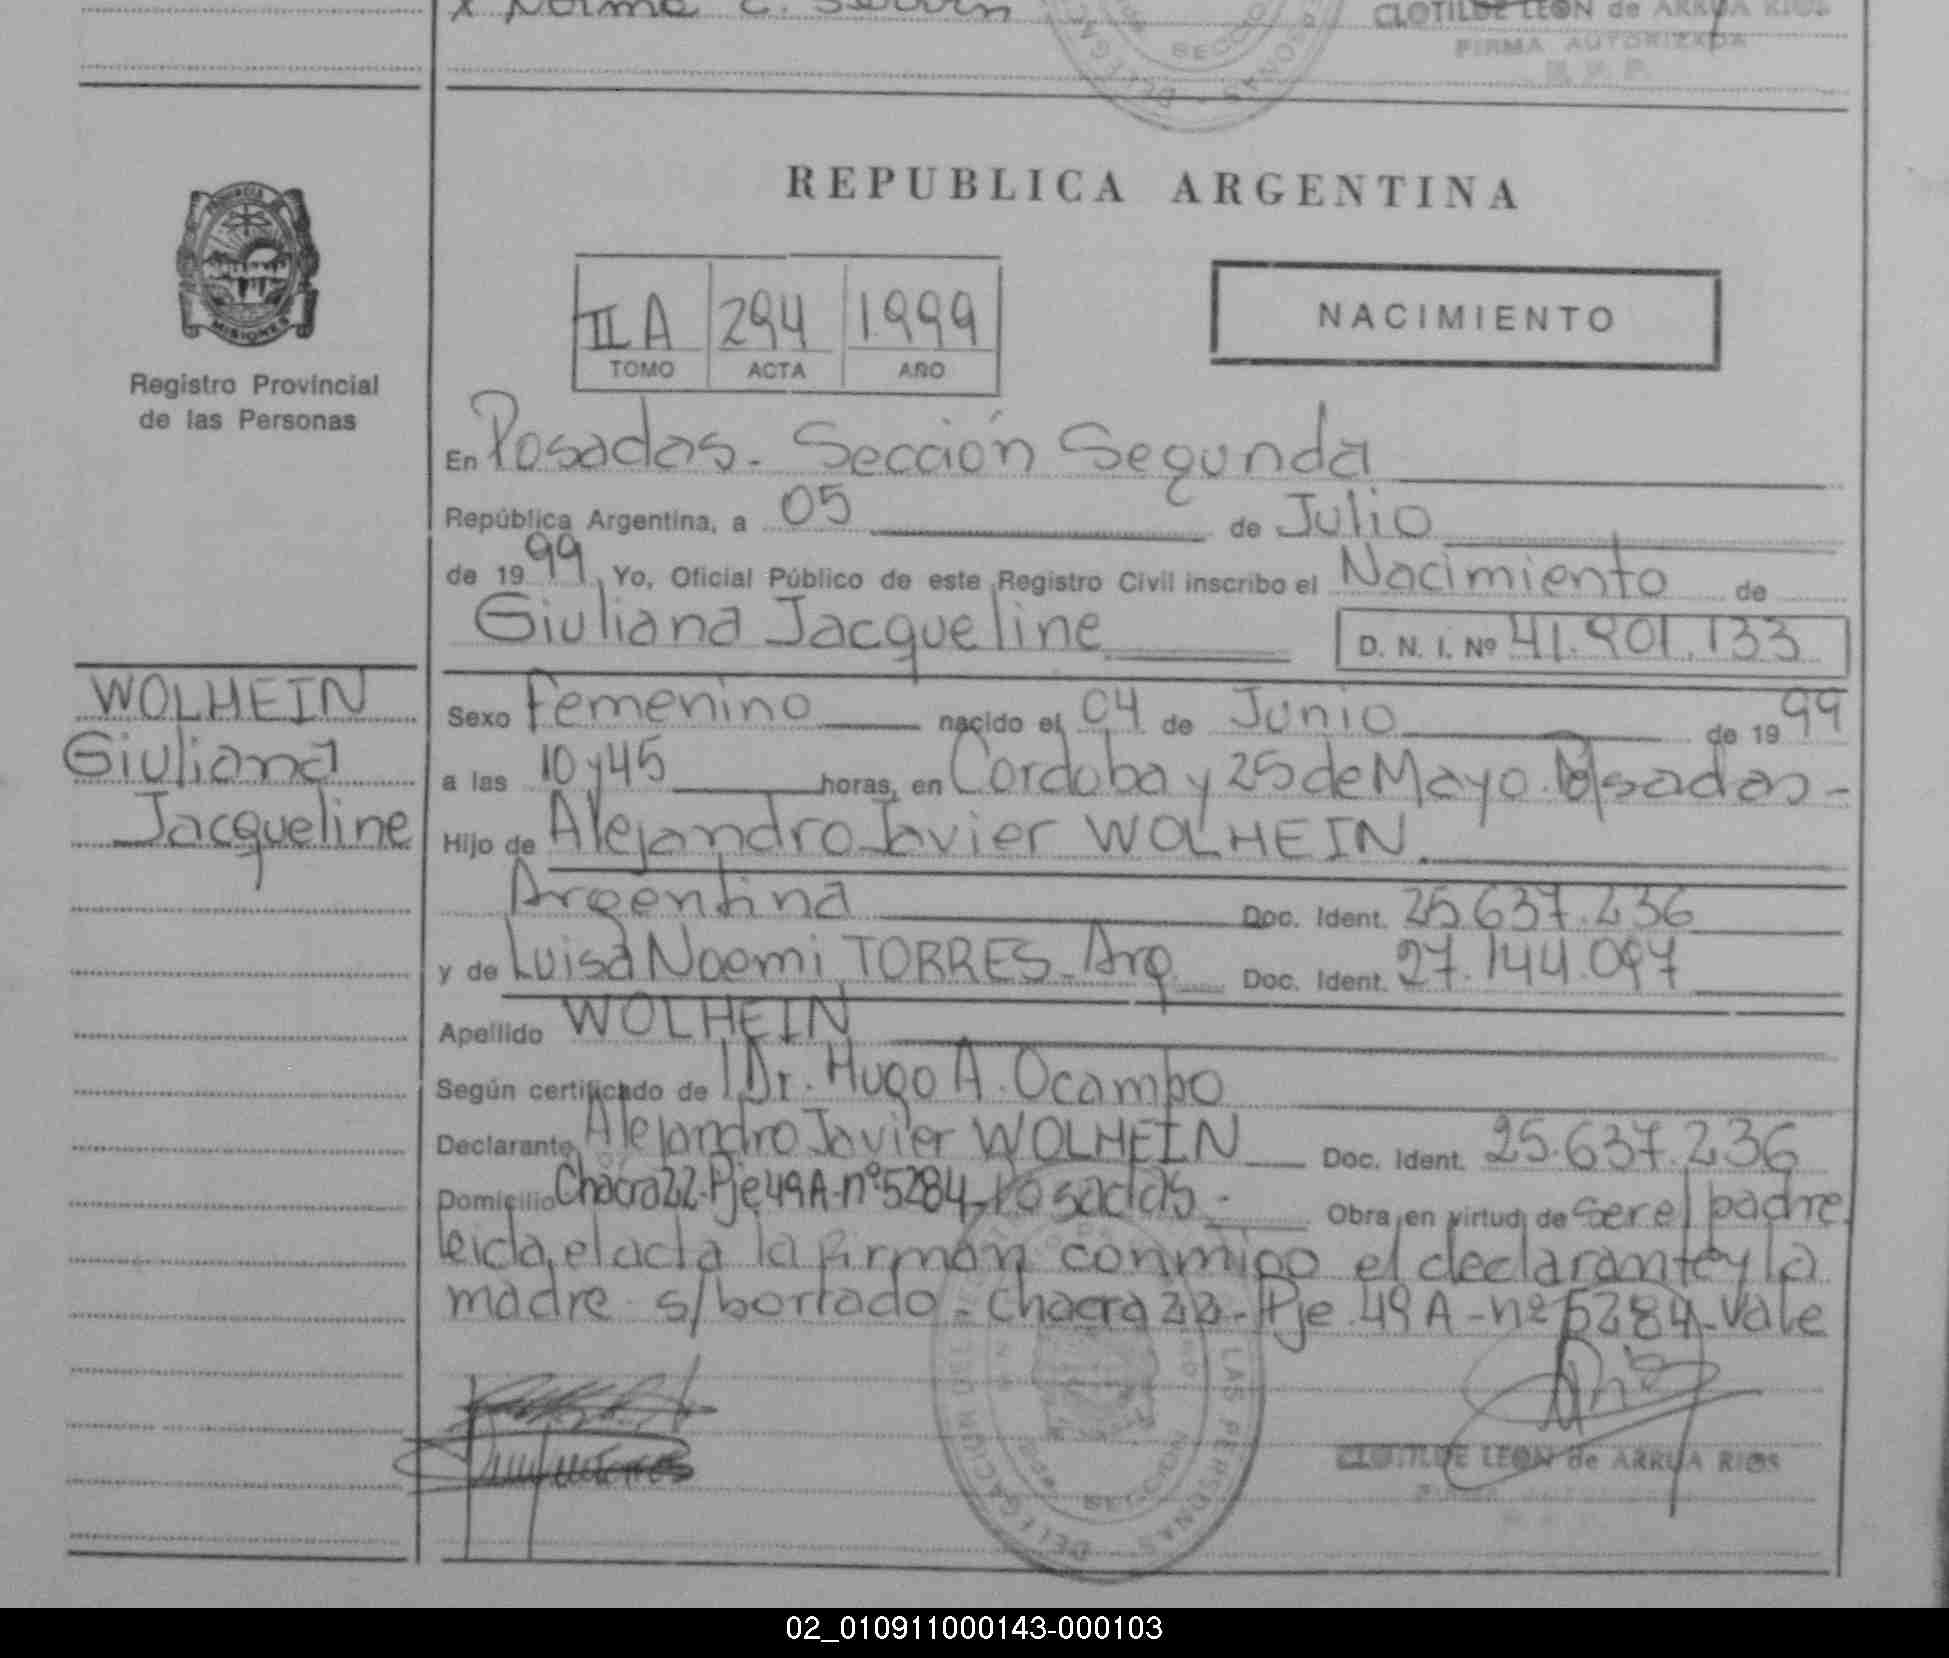 X Norma C.
CLOTILDE LEON de ARRUA RIOS
FIRMA AUTORIZADA
R. P. P.
SECCIO
REPUBLICA ARGENTINA
PROVINCIA
MISIONES
Registro Provincial
de las Personas
II A 294 1999
TOMO ACTA AÑO
NACIMIENTO
En Posadas. Sección Segunda
República Argentina, a 05 de Julio
de 1999, Yo, Oficial Público de este Registro Civil inscribo el Nacimiento de
Giuliana Jacqueline D. N. I. Nº 41.901.133
WOLHEIN
Giuliana
Jacqueline
Sexo Femenino nacido el 04 de Junio de 1999
a las 10 y 45 horas, en Cordoba y 25 de Mayo. Posadas-
Hijo de Alejandro Javier WOLHEIN
Argentina Doc. Ident. 25.637.236
y de Luisa Noemi TORRES - Arg. Doc. Ident. 27.144.097
Apellido WOLHEIN
Según certificado de Dr. Hugo A. Ocampo
Declarante Alejandro Javier WOLHEIN Doc. Ident. 25.637.236
Domicilio Chacra 22-Pje 49A-nº5284-Posadas- Obra en virtud de ser el padre
leida el acta la firman conmigo el declarante y la
madre. s/borrado - Chacra 22 - Pje. 49A - nº 5284 - Vale
CLOTILDE LEON de ARRUA RIOS
DELEGACION
LAS PERSONAS
SECCION
02_010911000143-000103